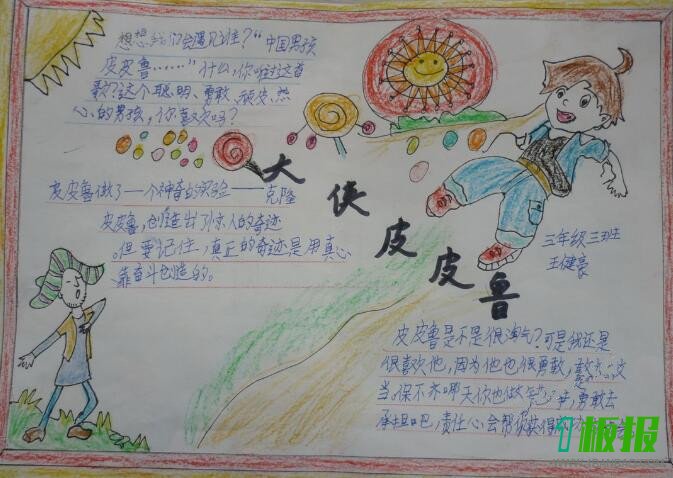 想想我们会遇见谁？“中国男孩
皮皮鲁……”什么，你听过这首
歌？这个聪明、勇敢、顽皮、热
心的男孩，你喜欢吗？
皮皮鲁做了一个神奇的实验——克隆
皮皮鲁，创造出了惊人的奇迹
。但要记住，真正的奇迹是用真心
靠奋斗创造的。
大侠皮皮鲁
三年级三班
王健豪
皮皮鲁是不是很淘气？可是我还是
很喜欢他，因为他也很勇敢，敢
当。保不齐哪天你也做 勇敢去
承担吧，责任心会帮你获得
板报